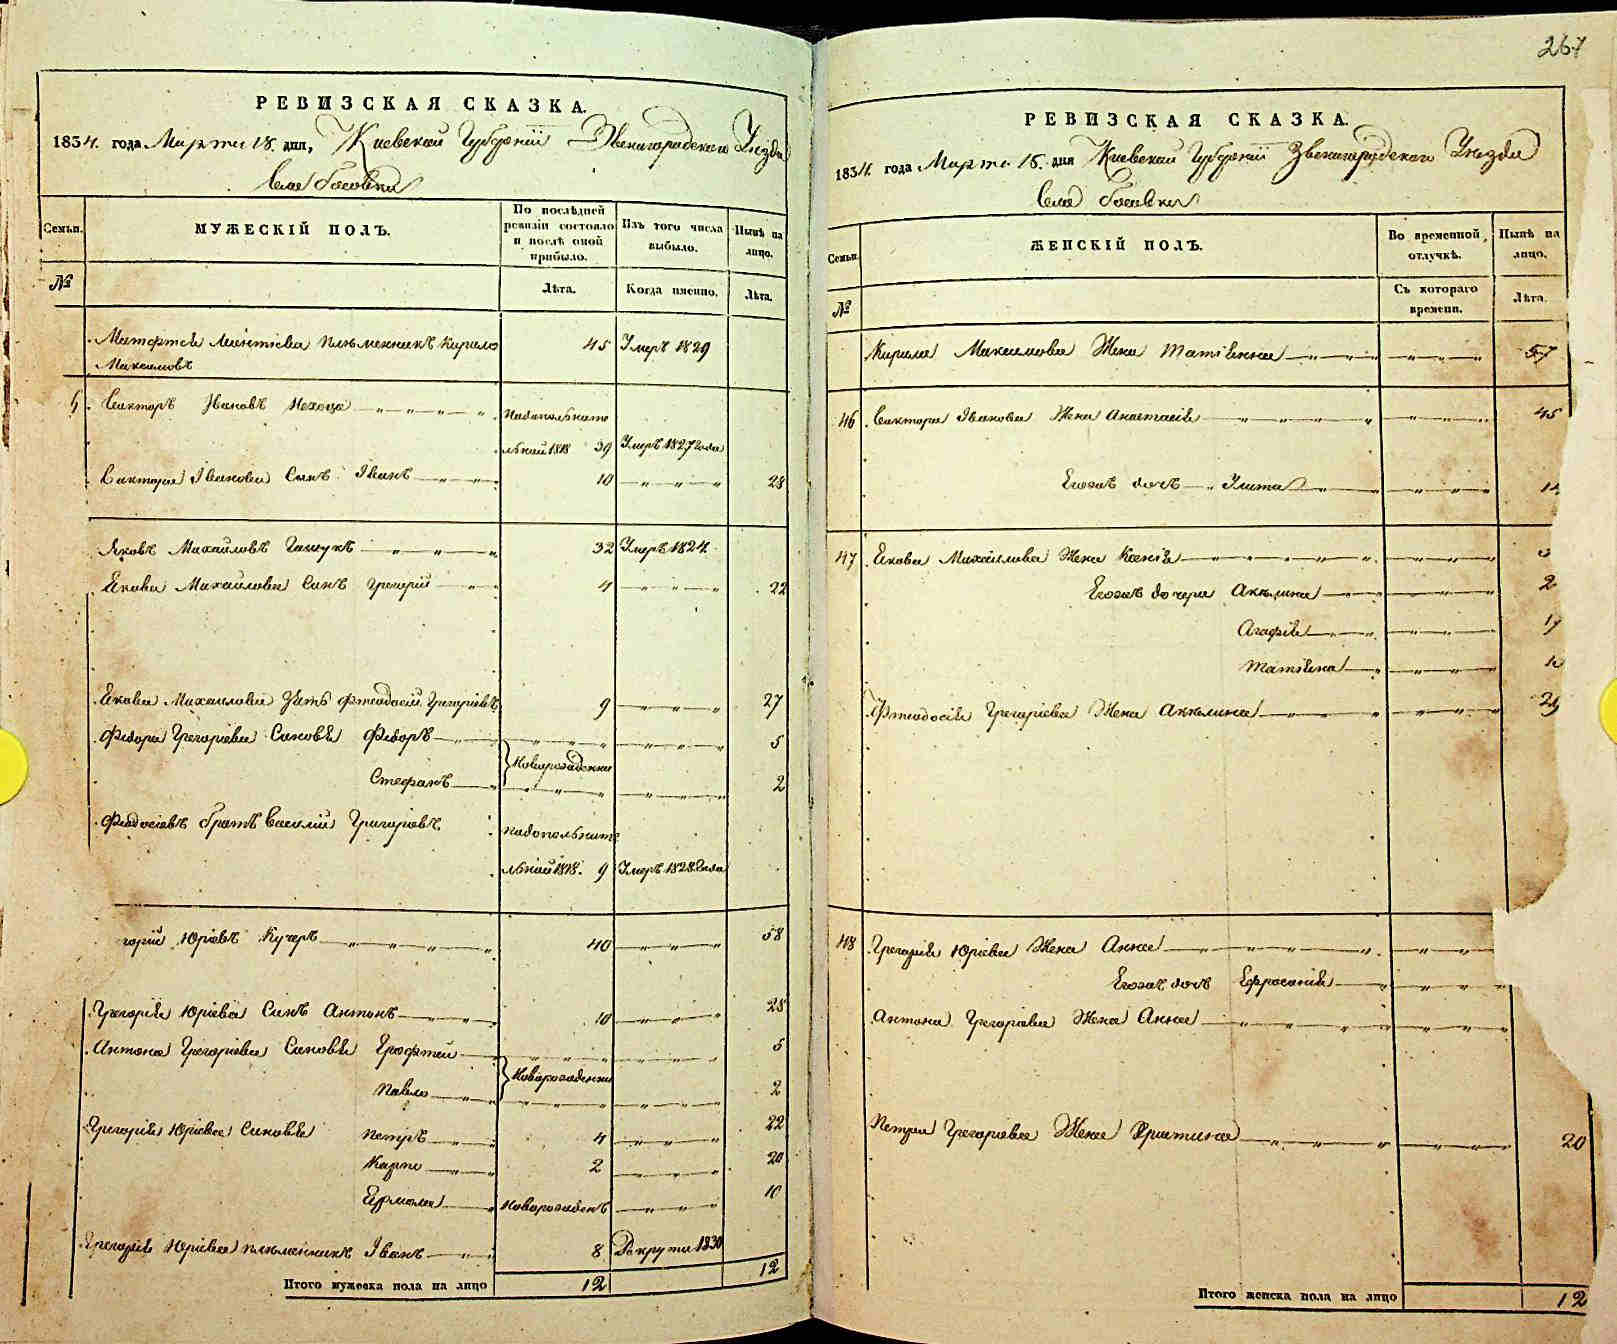 267
РЕВИЗСКАЯ СКАЗКА.
1834. года Марта 18. дня, Киевской Губернии Звенигородского Уезда
Села
Семьи.
МУЖЕСКІЙ ПОЛЪ.
По послѣдней ревизіи состояло и послѣ оной прибыло.
Изъ того числа выбыло.
Нынѣ на лицо.
№
Лѣта.
Когда именно.
Лѣта.
племенникъ Кирило 45 Умръ 1829
Максимовъ
Викторъ Ивановъ
льной 1818 39 Умръ 1827 Года
Виктора Іванова Синъ Іванъ 10 28
Яковъ Михайловъ 32 Умръ 1824
Якова Михайлова Синъ Григорій 4 22
Якова Михайлова Зять Григоріевъ 9 27
Федора Григоріева Синовья Федоръ 5
Новорожденни
Стефанъ 2
братъ Василій Григоріевъ
льной 1818. 9 Умръ 1828 Года
горій Юріевъ Кучеръ 40 58
Григорія Юріева Синъ Антонъ 10 28
Антона Григоріева Синовья 5
Новорожденни
Павло 2
Григорія Юріева Синовья Петръ 4 22
Карпо 2 20
Ермола Новорожденъ 10
Григорія Юріева племенникъ Іванъ 8 1830
Итого мужеска пола на лицо 12 12
РЕВИЗСКАЯ СКАЗКА.
1834. года Марта 18. дня Киевской Губернии Звенигородского Уезда
Села
Семьи.
ЖЕНСКІЙ ПОЛЪ.
Во временной отлучкѣ.
Нынѣ на лицо.
№
Съ котораго времени.
Лѣта.
Кирила Максимова Жена Татіянна 57
46 Виктора Іванова Жена Анастасія 45
Егожъ дочь
47 Якова Михайлова Жена Ксенія
Егожъ дочери Акилина 2
Агафія 17
Татіяна
Григоріева Жена Акилина 29
48 Григорія Юріева Жена Анна
Егожъ дочь Ефросинія
Антона Григоріева Жена Анна
Петра Григоріева Жена Христина 20
Итого женска пола на лицо 12